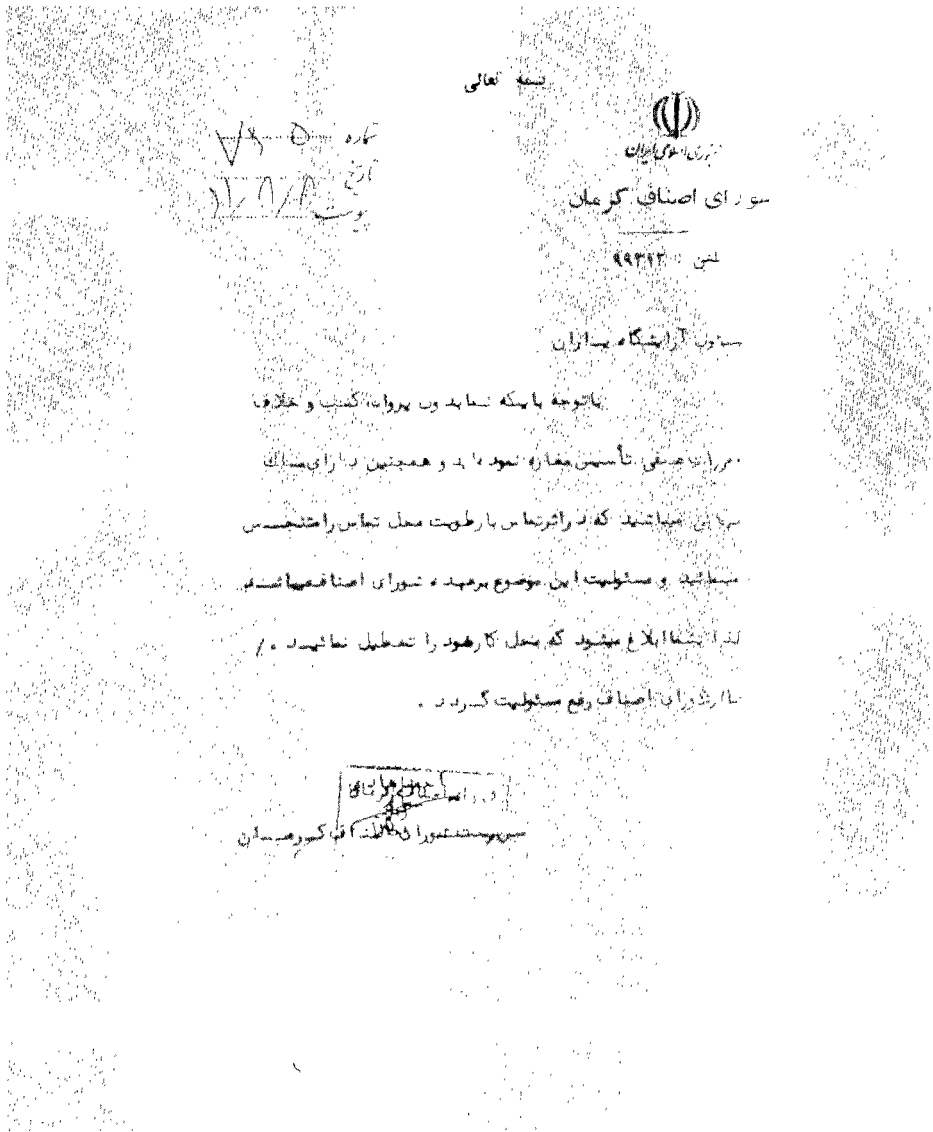 بسمه تعالی
جمهوری اسلامی ایران
شورای اصناف کرمان
تلفن : ۹۹۳۱۲
شماره
تاریخ
پیوست
آرایشگاه
باتوجه باینکه شما بدون پروانه کسب و خلاف
مقررات صنفی تأسیس مغازه نموده اید و همچنین دارای مسلك
میباشید که در اثر تماس با رطوبت محل تماس را متنجس
مینمائید و مسئولیت این موضوع برعهده شورای اصناف میباشد
لذا بشما ابلاغ میشود که محل کار خود را تعطیل نمائید ./
تا از شورای اصناف رفع مسئولیت گردد .
سرپرست شورای اصناف کرمان